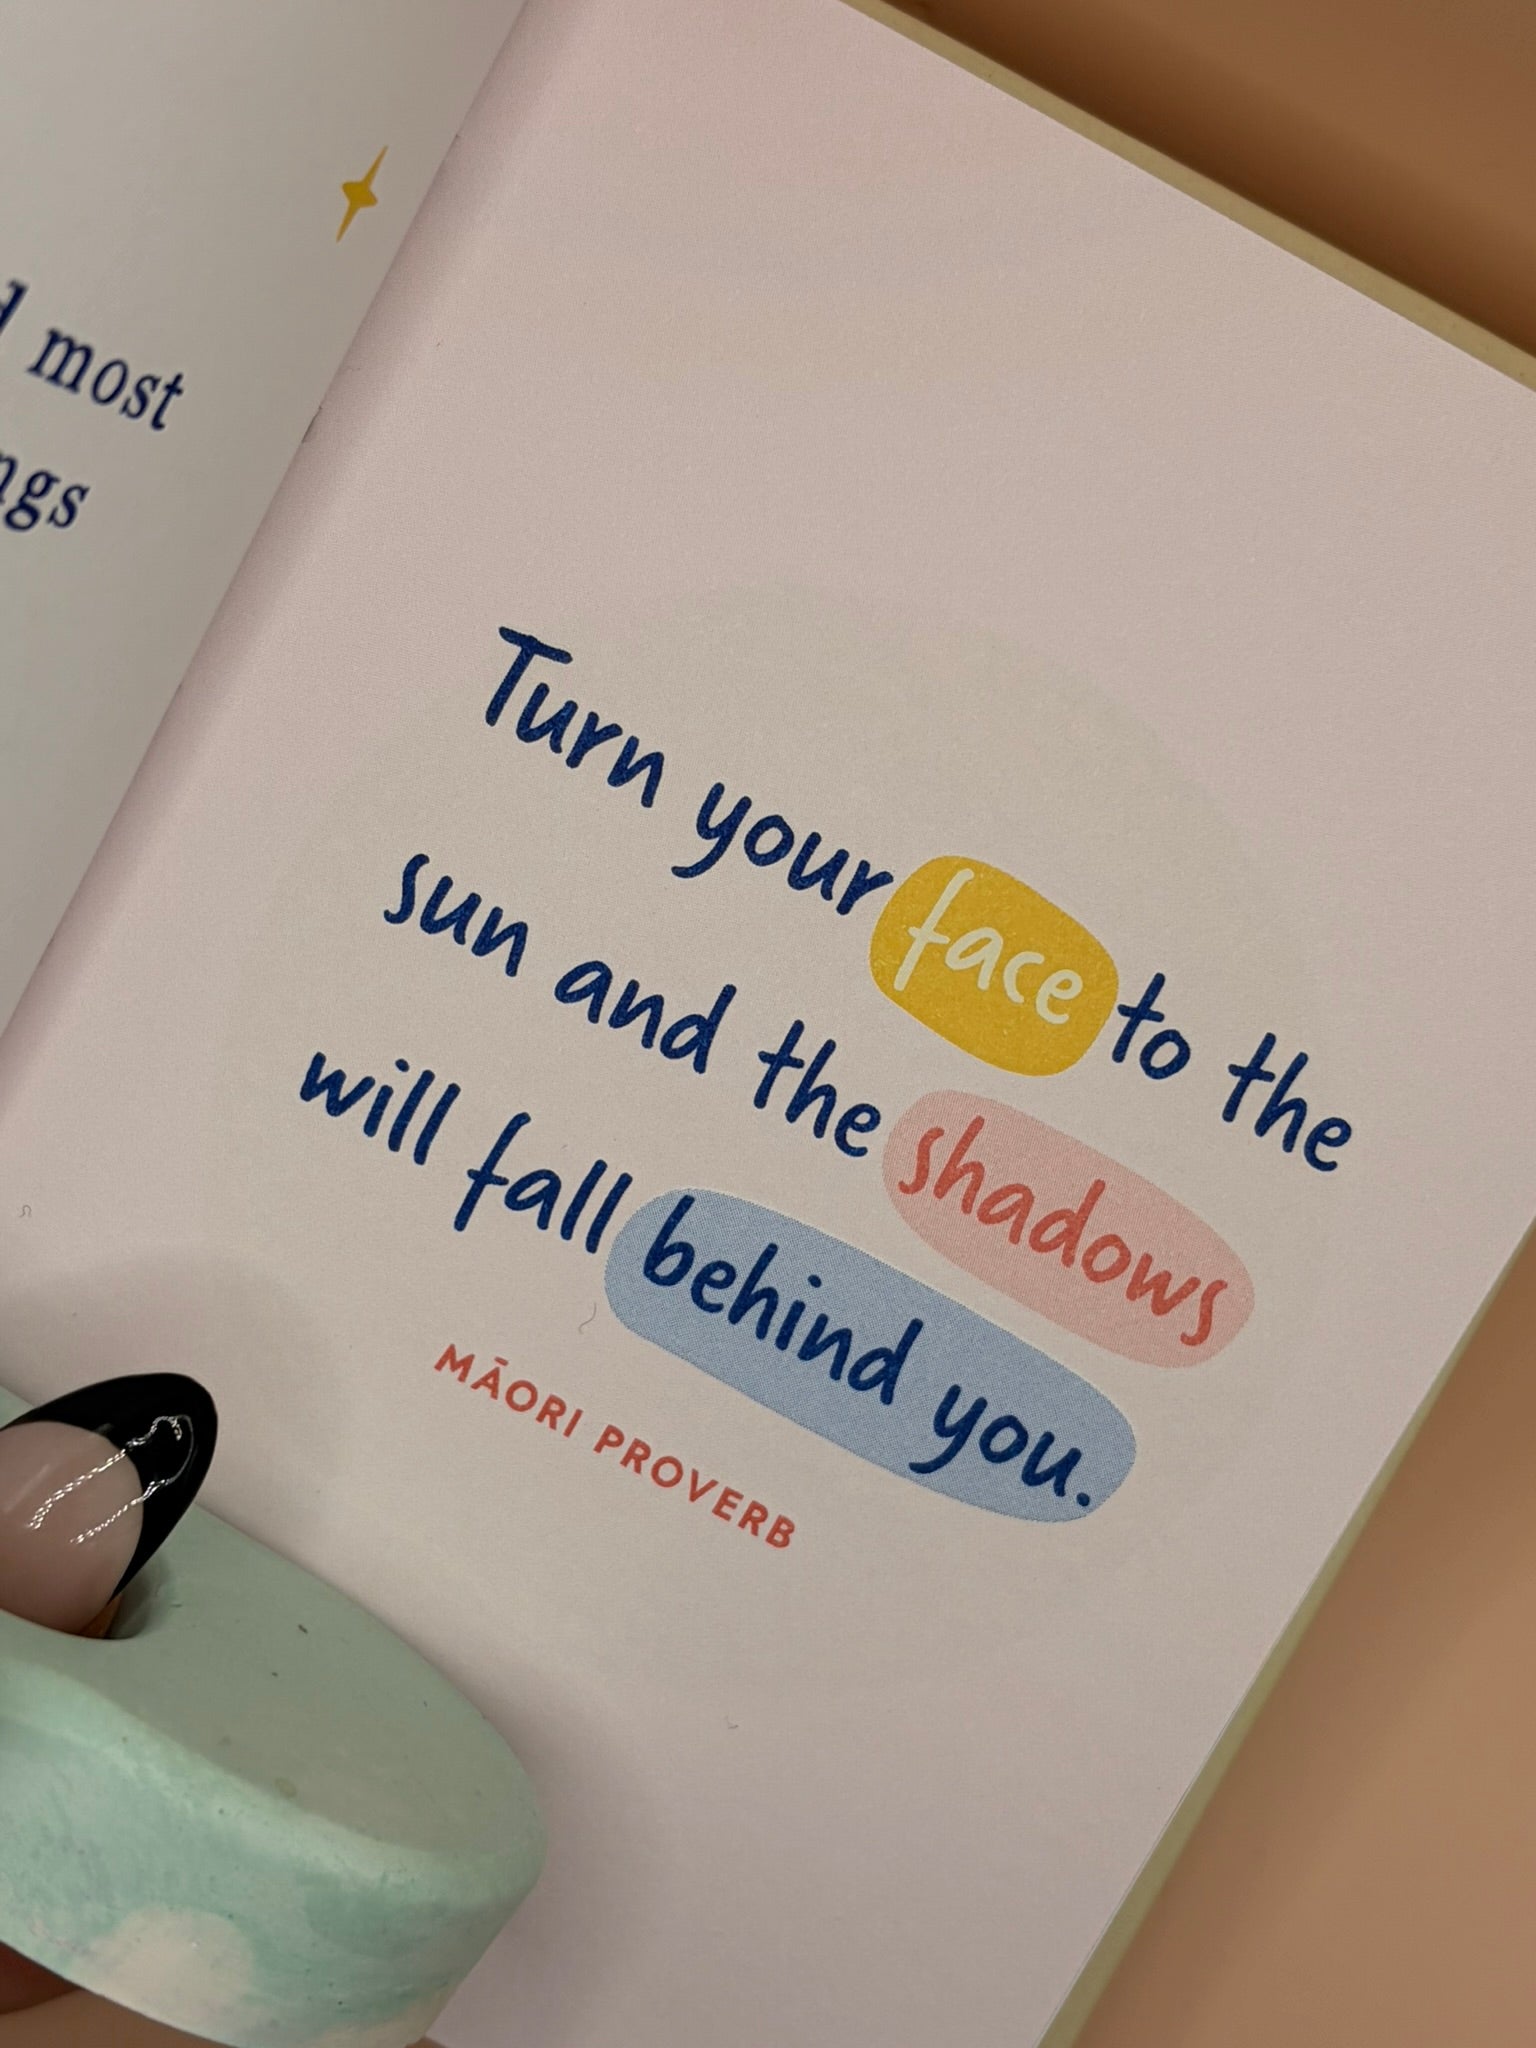 most
Turn your face to the
sun and the shadows
will fall behind you.
MĀORI PROVERB